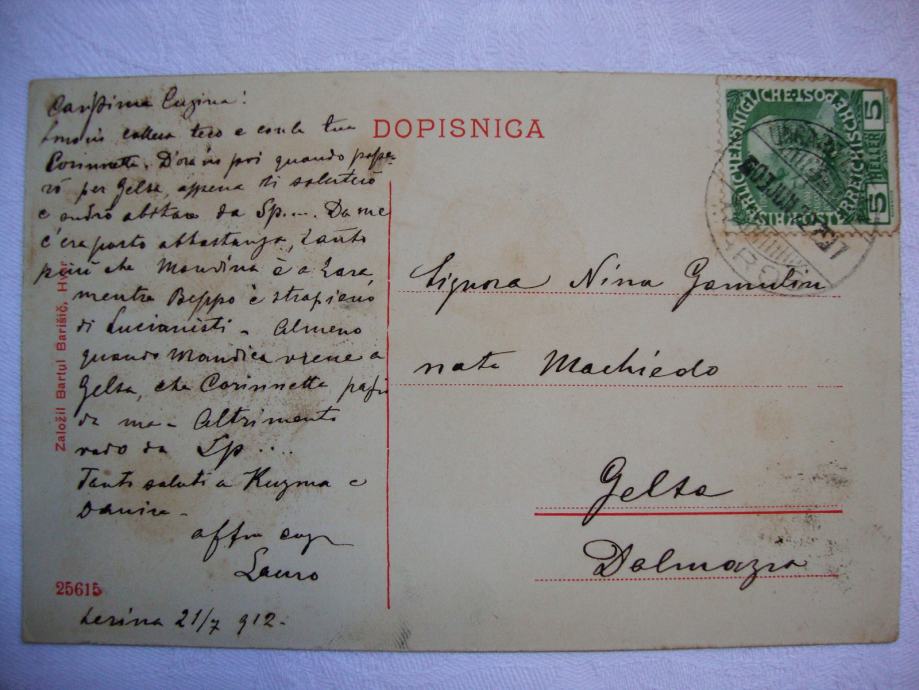 DOPISNICA
Carissima Cugina!
sono in collera teco e con la tua
Corinnetta. D'ora in poi quando passe-
rò per Gelsa, appena ti saluterò
e andrò abitare da Sp.... Da me
c'era posto abbastanza, tanto
più che Mandina è a Zara
mentre Beppo è strapieno
di Lucianisti - Almeno
quando Mandica viene a
Gelsa, che Corinnetta passi
da me - Altrimenti
vado da Sp....
Tanti saluti a Kuzma e
Danira -
affmo cug
Lauro
Lesina 21/7 912.
Signora Nina Gamulin
nata Machiedo
Gelsa
Dalmazia
Založil Bartul Barišič, Hvar
25615
5 HELLER 5
KAISERLICHE KÖNIGLICHE ÖSTERREICHISCHE POST